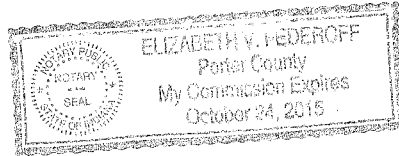 NOTARY PUBLIC
NOTARY
SEAL
STATE OF INDIANA
ELIZABETH V. FEDEROFF
Porter County
My Commission Expires
October 24, 2015